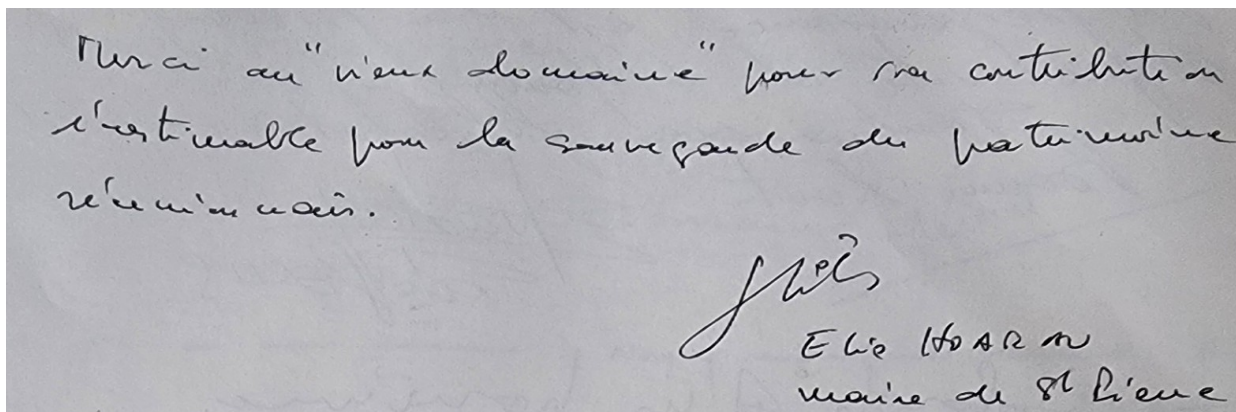 Merci au "vieux domaine" pour sa contribution
inestimable pour la sauvegarde du patrimoine
réunionnais.
Elie HOARAU
maire de St Pierre